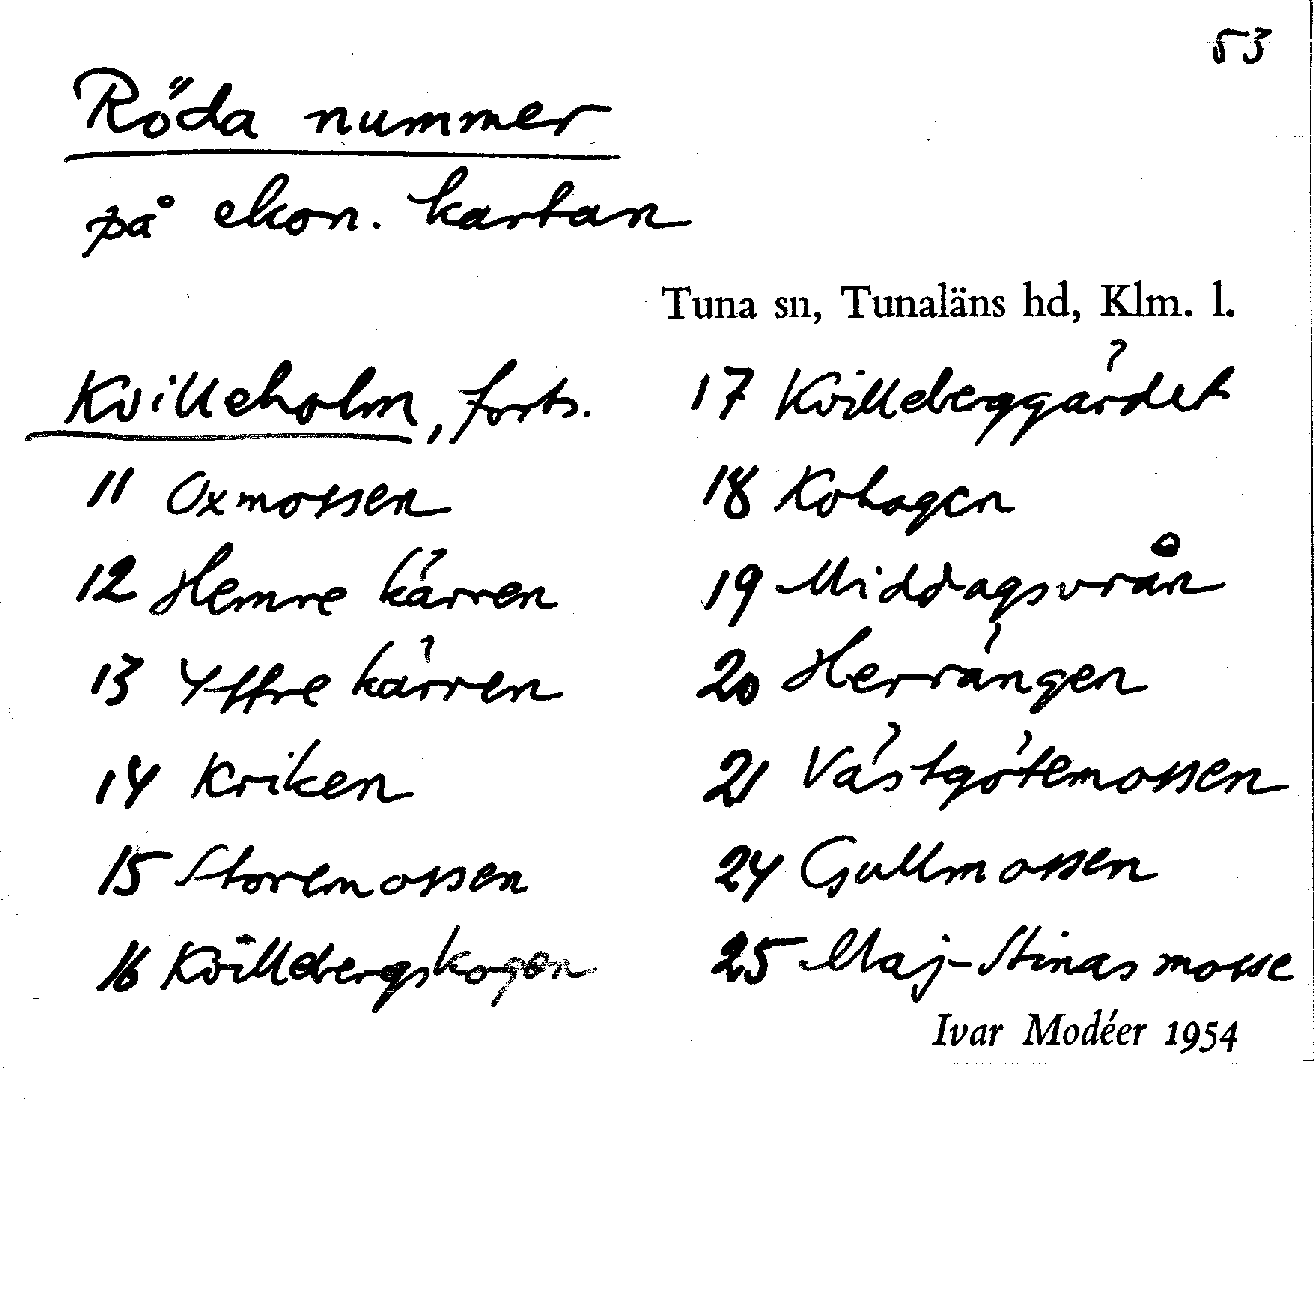 53
Röda nummer
på ekon. kartan
Tuna sn, Tunaläns hd, Klm. l.
Kvilleholm, forts.
11 Oxmossen
12 Hemre kärren
13 Yttre kärren
14 Kriken
15 Storemossen
16 Kvillebergskogen
17 Kvilleberggärdet
18 Kohagen
19 Middagsvrån
20 Herrängen
21 Västgötemossen
24 Gullmossen
25 Maj-Stinas mosse
Ivar Modéer 1954